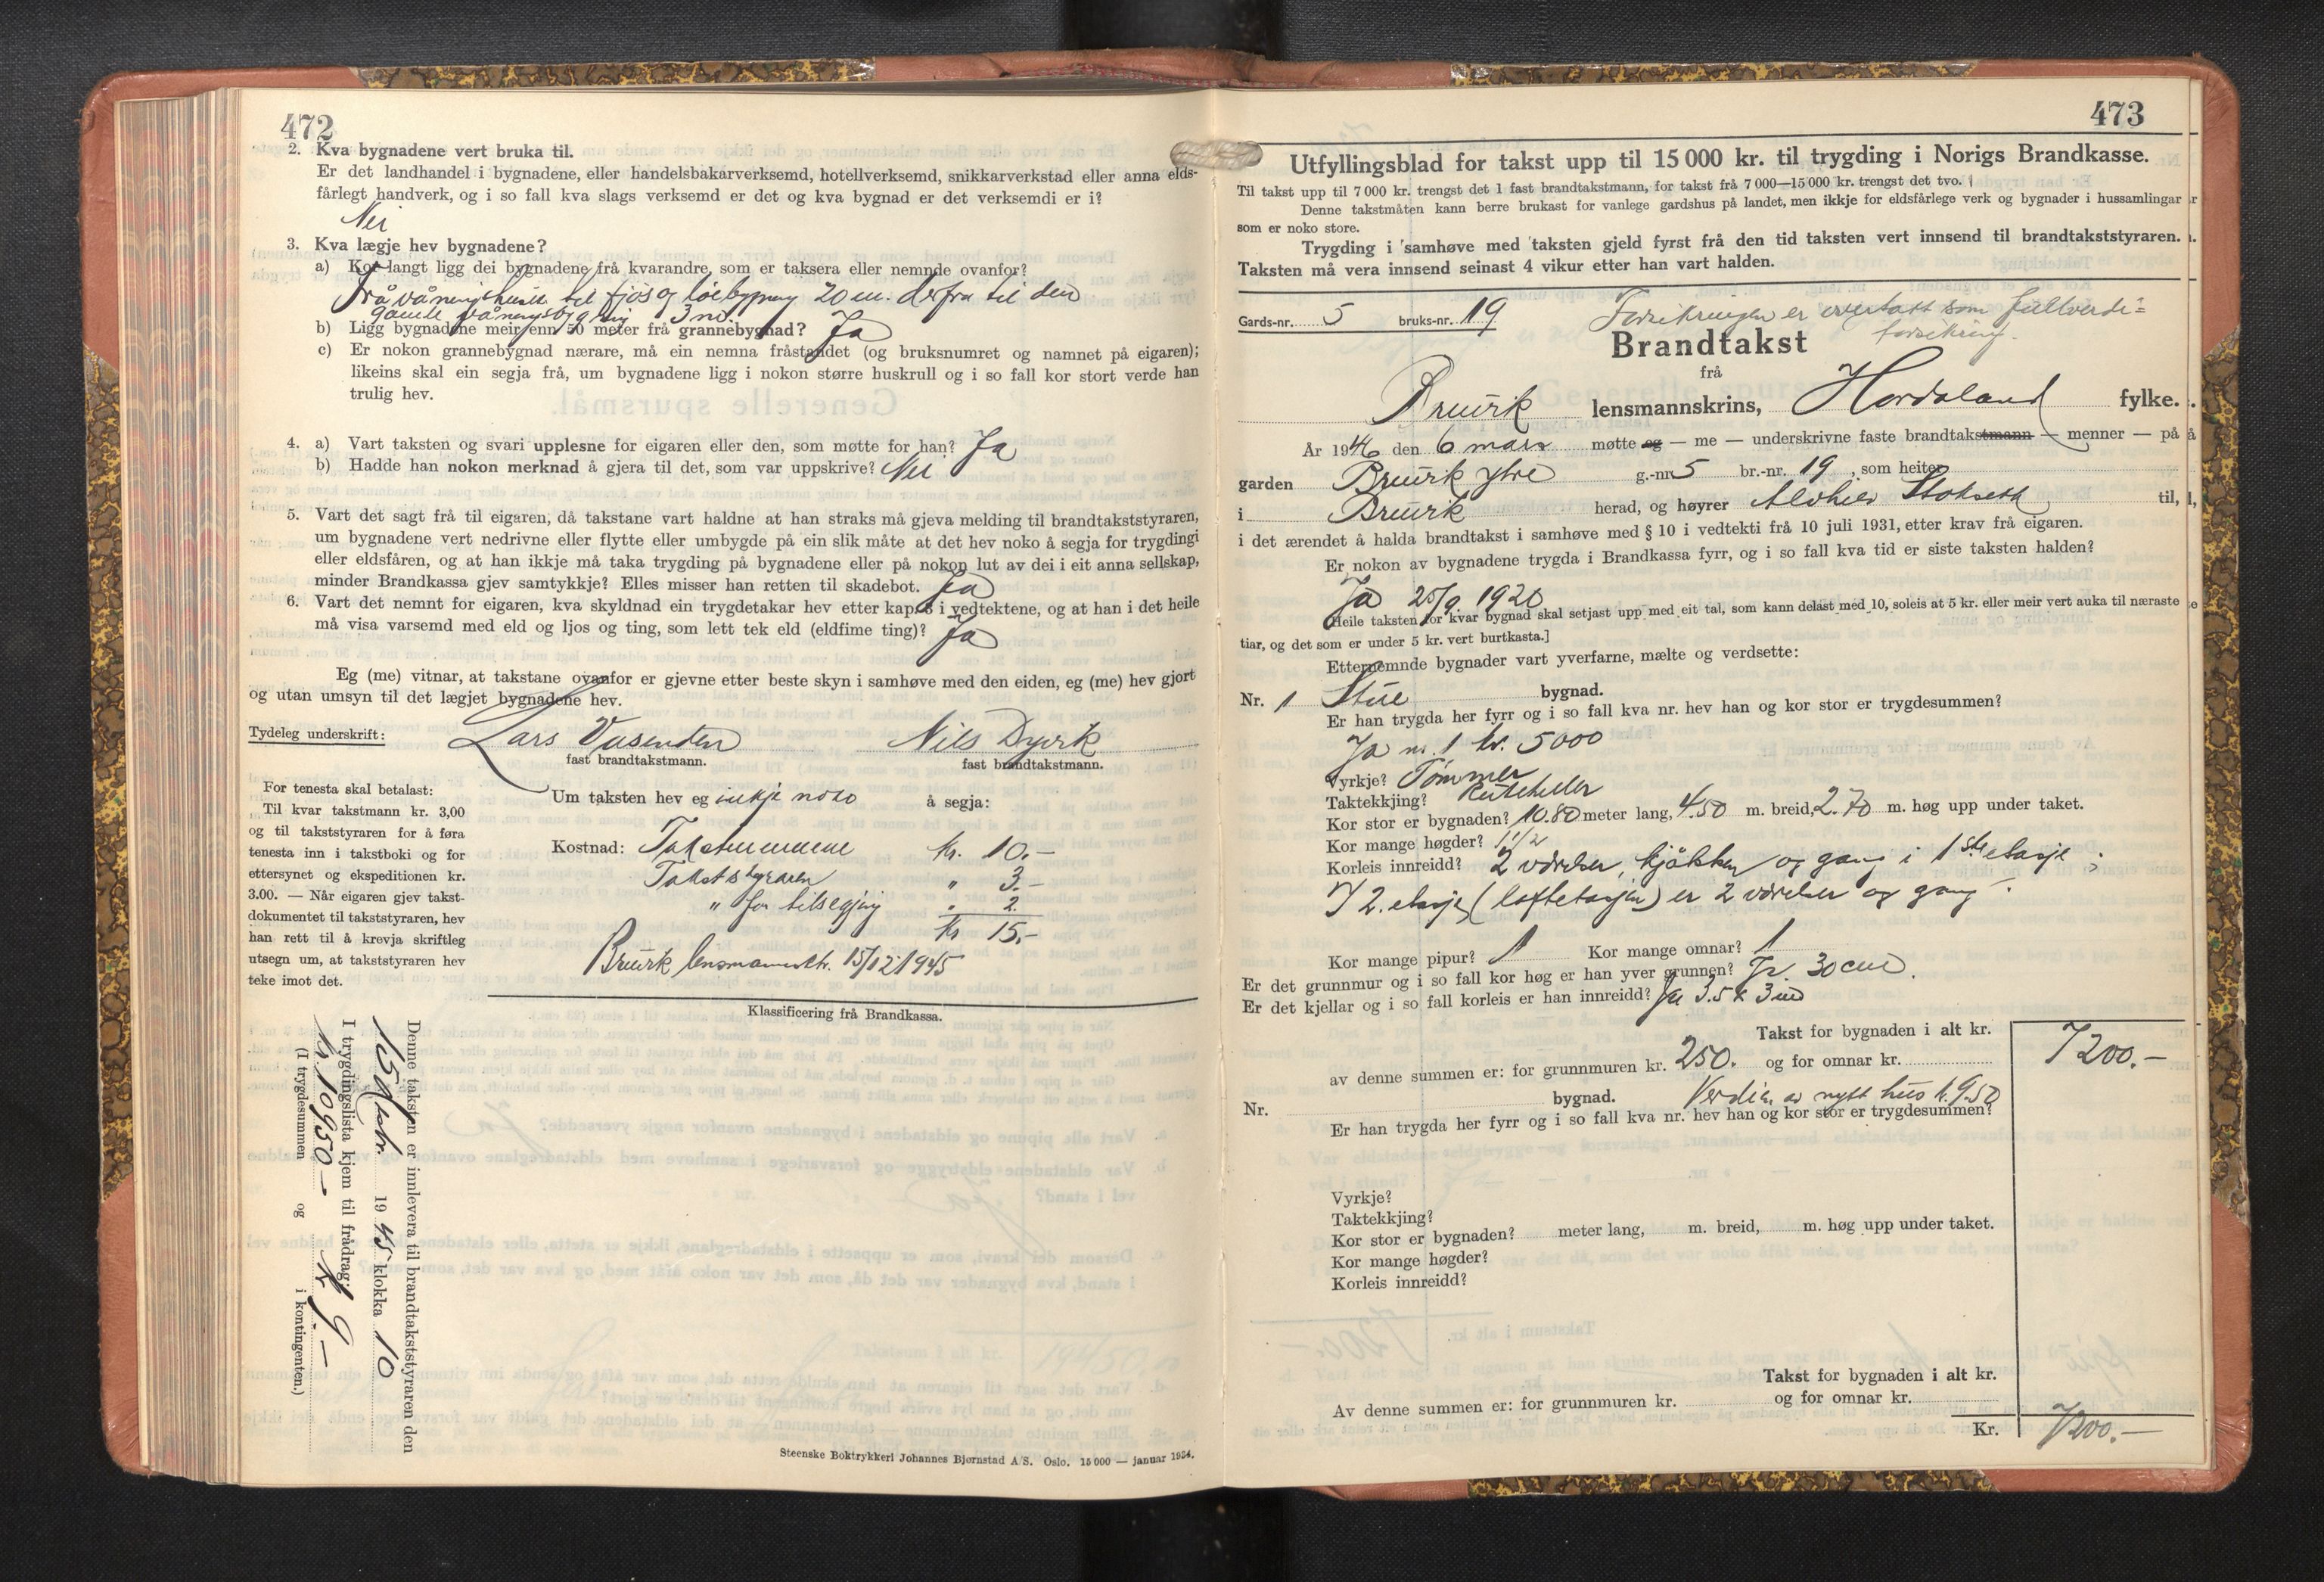 472
2. Kva bygnadene vert bruka til.
Er det landhandel i bygnadene, eller handelsbakarverksemd, hotellverksemd, snikkarverkstad eller anna elds-
fårlegt handverk, og i so fall kva slags verksemd er det og kva bygnad er det verksemdi er i?
Nei
3. Kva lægje hev bygnadene?
a) Kor langt ligg dei bygnadene frå kvarandre, som er taksera eller nemnde ovanfor?
Frå våningshuset til fjös og löebygning 20 m. derfra til den
gamle våningsbygning 3 m.
b) Ligg bygnadene meir enn 50 meter frå grannebygnad? Ja
c) Er nokon grannebygnad nærare, må ein nemna fråstandet (og bruksnumret og namnet på eigaren);
likeins skal ein segja frå, um bygnadene ligg i nokon større huskrull og i so fall kor stort verde han
trulig hev.
4. a) Vart taksten og svari upplesne for eigaren eller den, som møtte for han? Ja
b) Hadde han nokon merknad å gjera til det, som var uppskrive? Nei
5. Vart det sagt frå til eigaren, då takstane vart haldne at han straks må gjeva melding til brandtakststyraren,
um bygnadene vert nedrivne eller flytte eller umbygde på ein slik måte at det hev noko å segja for trygdingi
eller eldsfåren, og at han ikkje må taka trygding på bygnadene eller på nokon lut av dei i eit anna sellskap,
minder Brandkassa gjev samtykkje? Elles misser han retten til skadebot. Ja
6. Vart det nemnt for eigaren, kva skyldnad ein trygdetakar hev etter kap. 8 i vedtektene, og at han i det heile
må visa varsemd med eld og ljos og ting, som lett tek eld (eldfime ting)? Ja
Eg (me) vitnar, at takstane ovanfor er gjevne etter beste skyn i samhøve med den eiden, eg (me) hev gjort
og utan umsyn til det lægjet bygnadene hev.
Tydeleg underskrift: Lars Vasenden Nils Dyvik
fast brandtakstmann. fast brandtakstmann.
For tenesta skal betalast:
Til kvar takstmann kr. 3,00
og til takststyraren for å føra
tenesta inn i takstboki og for
ettersynet og ekspeditionen kr.
3.00. — Når eigaren gjev takst-
dokumentet til takststyraren, hev
han rett til å krevja skriftleg
utsegn um, at takststyraren hev
teke imot det.
Um taksten hev eg inkje noko å segja:
Kostnad: Takstmennene kr. 10.-
Takststyraren " 3.-
" for tilsegjing " 2.
kr 15.-
Bruvik lensmannsktr. 15/12 1945
Klassificering frå Brandkassa.
Denne taksten er innlevera til brandtakststyraren den
15 19 45 klokka 10
I trygdingslista kjem til frådrag:
kr. 10950- kr 9.-
(I trygdesummen og i kontingenten.)
Steenske Boktrykkeri Johannes Bjørnstad A/S. Oslo. 15 000 — januar 1934.
473
Utfyllingsblad for takst upp til 15 000 kr. til trygding i Norigs Brandkasse.
Til takst upp til 7 000 kr. trengst det 1 fast brandtakstmann, for takst frå 7 000—15 000 kr. trengst det tvo.
Denne takstmåten kann berre brukast for vanlege gardshus på landet, men ikkje for eldsfårlege verk og bygnader i hussamlingar
som er noko store.
Trygding i samhøve med taksten gjeld fyrst frå den tid taksten vert innsend til brandtakststyraren.
Taksten må vera innsend seinast 4 vikur etter han vart halden.
Gards-nr. 5 bruks-nr. 19 Forsikringen er overtatt som fullverdi=
forsikring.
Brandtakst
frå
Bruvik lensmannskrins, Hordaland fylke.
År 1946 den 6 mars møtte eg — me — underskrivne faste brandtakstmann — menner — på
garden Bruvik ytre g.-nr 5 br.-nr. 19, som heiter
i Bruvik herad, og høyrer Stokseth til,
i det ærendet å halda brandtakst i samhøve med § 10 i vedtekti frå 10 juli 1931, etter krav frå eigaren.
Er nokon av bygnadene trygda i Brandkassa fyrr, og i so fall kva tid er siste taksten halden?
Ja 25/9 1920
[Heile taksten for kvar bygnad skal setjast upp med eit tal, som kann delast med 10, soleis at 5 kr. eller meir vert auka til næraste
tiar, og det som er under 5 kr. vert burtkasta.]
Etternemnde bygnader vart yverfarne, mælte og verdsette:
Nr. 1 Stue bygnad.
Er han trygda her fyrr og i so fall kva nr. hev han og kor stor er trygdesummen?
Ja nr. 1 kr. 5000
Vyrkje? Tömmer
Taktekkjing? Ruteheller
Kor stor er bygnaden? 10.80 meter lang, 4.50 m. breid, 2.70 m. høg upp under taket.
Kor mange høgder? 1 1/2
Korleis innreidd? 2 værelser, kjökken og gang i 1ste etasje ;
I 2. etasje (loftetasjen) er 2 værelser og gang.
Kor mange pipur? 1 Kor mange omnar? 1
Er det grunnmur og i so fall kor høg er han yver grunnen? Ja 30 cm.
Er det kjellar og i so fall korleis er han innreidd? Ja 3.5 x 3 m
Takst for bygnaden i alt kr. 7200.-
av denne summen er: for grunnmuren kr. 250. og for omnar kr.
Nr. bygnad. Verdien av nytt hus
Er han trygda her fyrr og i so fall kva nr. hev han og kor stor er trygdesummen?
Vyrkje?
Taktekkjing?
Kor stor er bygnaden? meter lang, m. breid, m. høg upp under taket.
Kor mange høgder?
Korleis innreidd?
Takst for bygnaden i alt kr.
Av denne summen er: for grunnmuren kr. og for omnar kr.
Kr. 7200.-